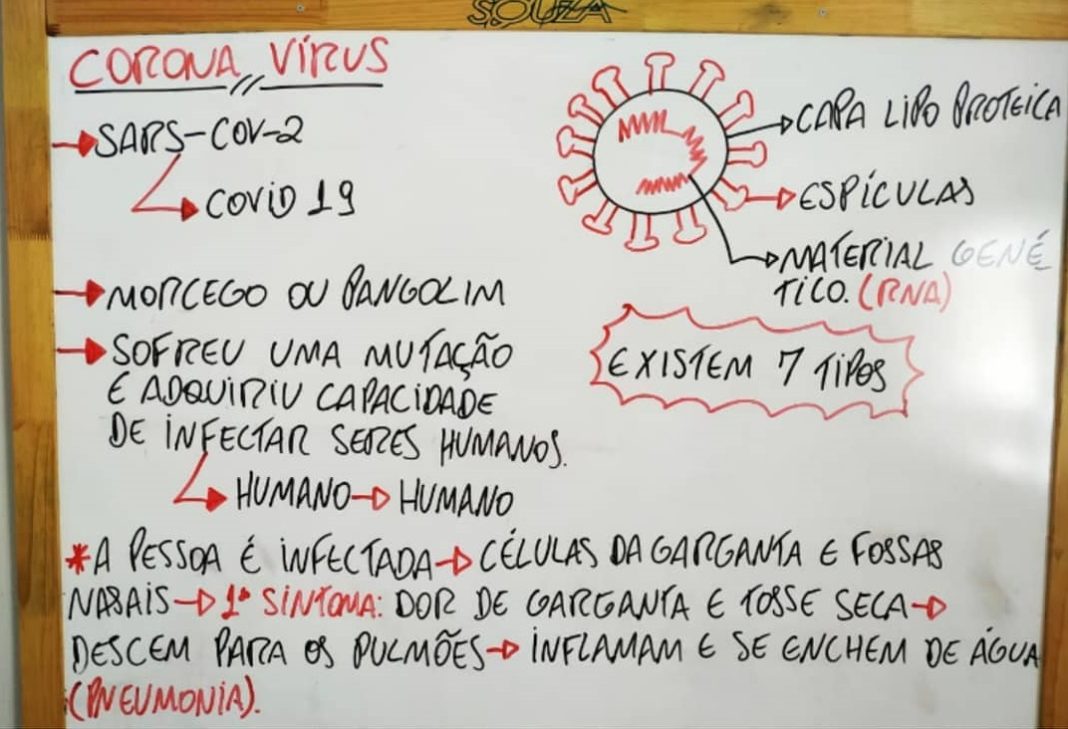 SOUZA
CORONA VÍRUS
SARS-COV-2
COVID 19
MORCEGO OU PANGOLIM
SOFREU UMA MUTAÇÃO
E ADQUIRIU CAPACIDADE
DE INFECTAR SERES HUMANOS.
HUMANO→HUMANO
CAPA LIPO PROTEICA
ESPÍCULAS
MATERIAL GENÉ
TICO. (RNA)
EXISTEM 7 TIPOS
*A PESSOA É INFECTADA→CÉLULAS DA GARGANTA E FOSSAS
NASAIS→1º SINTOMA: DOR DE GARGANTA E TOSSE SECA→
DESCEM PARA OS PULMÕES→INFLAMAM E SE ENCHEM DE ÁGUA
(PNEUMONIA).